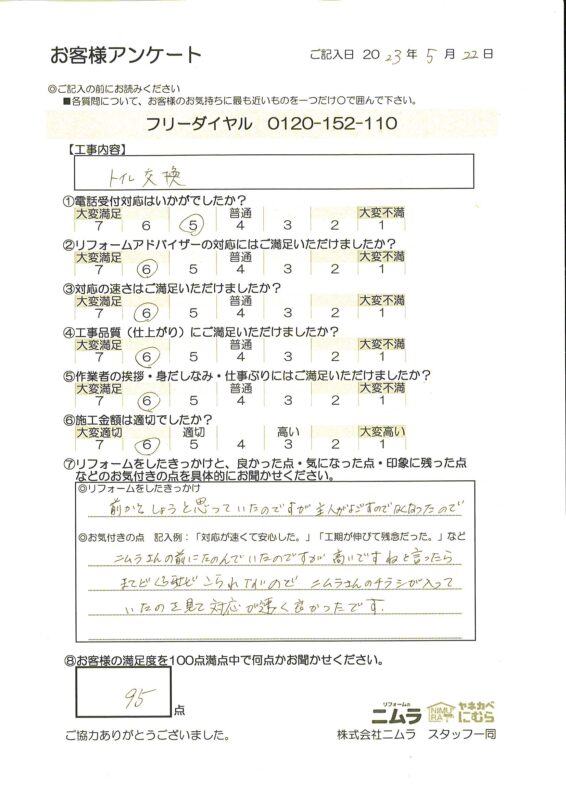 お客様アンケート
ご記入日 2023年5月22日
◎ご記入の前にお読みください
■各質問について、お客様のお気持ちに最も近いものを一つだけ○で囲んで下さい。
フリーダイヤル 0120-152-110
【工事内容】
トイレ交換
①電話受付対応はいかがでしたか?
大変満足 普通 大変不満
7 6 5 4 3 2 1
②リフォームアドバイザーの対応にはご満足いただけましたか?
大変満足 普通 大変不満
7 6 5 4 3 2 1
③対応の速さはご満足いただけましたか?
大変満足 普通 大変不満
7 6 5 4 3 2 1
④工事品質(仕上がり)にご満足いただけましたか?
大変満足 普通 大変不満
7 6 5 4 3 2 1
⑤作業者の挨拶・身だしなみ・仕事ぶりにはご満足いただけましたか?
大変満足 普通 大変不満
7 6 5 4 3 2 1
⑥施工金額は適切でしたか?
大変適切 適切 高い 大変高い
7 6 5 4 3 2 1
⑦リフォームをしたきっかけと、良かった点・気になった点・印象に残った点
などのお気付きの点を具体的にお聞かせください。
◎リフォームをしたきっかけ
前からしようと思っていたのですが主人がよごすのでなくなったので
◎お気付きの点 記入例:「対応が速くて安心した。」「工期が伸びて残念だった。」など
ニムラさんの前にたのんでいたのですが高いですねと言ったら
まてどくらせどこられないので ニムラさんのチラシが入って
いたのを見て対応が速く良かったです.
⑧お客様の満足度を100点満点中で何点かお聞かせください。
95点
リフォームの
ニムラ
NIMU
RA
ヤネカベ
にむら
ご協力ありがとうございました。
株式会社ニムラ スタッフ一同